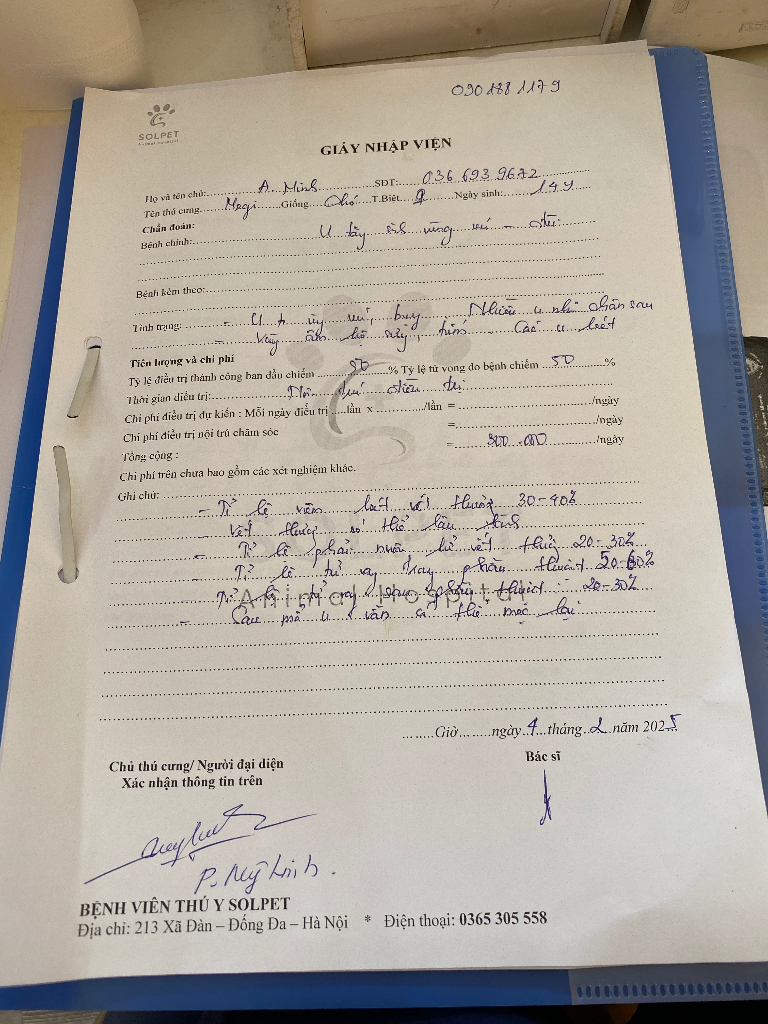 090 188 1179
SOLPET
ANIMAL HOSPITAL
GIẤY NHẬP VIỆN
Họ và tên chủ: A. Minh SĐT: 036 693 9672
Tên thú cưng Megi Giống Chó T.Biệt ♀ Ngày sinh: 14y
Chẩn đoán:
Bệnh chính: U vùng vú -
Bệnh kèm theo:
Tình trạng: - U vú, Nhiều u nhú chân sau
- Vùng âm hộ Các u loét
Tiên lượng và chi phí
Tỷ lệ điều trị thành công ban đầu chiếm 50 % Tỷ lệ tử vong do bệnh chiếm 50 %
Thời gian điều trị: điều trị
Chi phí điều trị dự kiến : Mỗi ngày điều trị .....lần x ............/lần = ............/ngày
Chi phí điều trị nội trú chăm sóc =............/ngày
Tổng cộng : = 300.000 /ngày
Chi phí trên chưa bao gồm các xét nghiệm khác.
Ghi chú:
- Tỉ lệ viêm loét vết thương 30-40%
- Vết thương có thể lâu lành
- Tỉ lệ phải vết thương 20-30%
- Tỉ lệ tử vong trong phẫu thuật 50-60%
- Tỉ lệ tử vong sau phẫu thuật : 20-30%
Animal Hospital
- Sau mổ u vẫn có thể mọc lại
........Giờ........ngày 4 tháng 2 năm 2025
Chủ thú cưng/ Người đại diện
Xác nhận thông tin trên
Bác sĩ
P. Mỹ Linh.
BỆNH VIỆN THÚ Y SOLPET
Địa chỉ: 213 Xã Đàn – Đống Đa – Hà Nội * Điện thoại: 0365 305 558